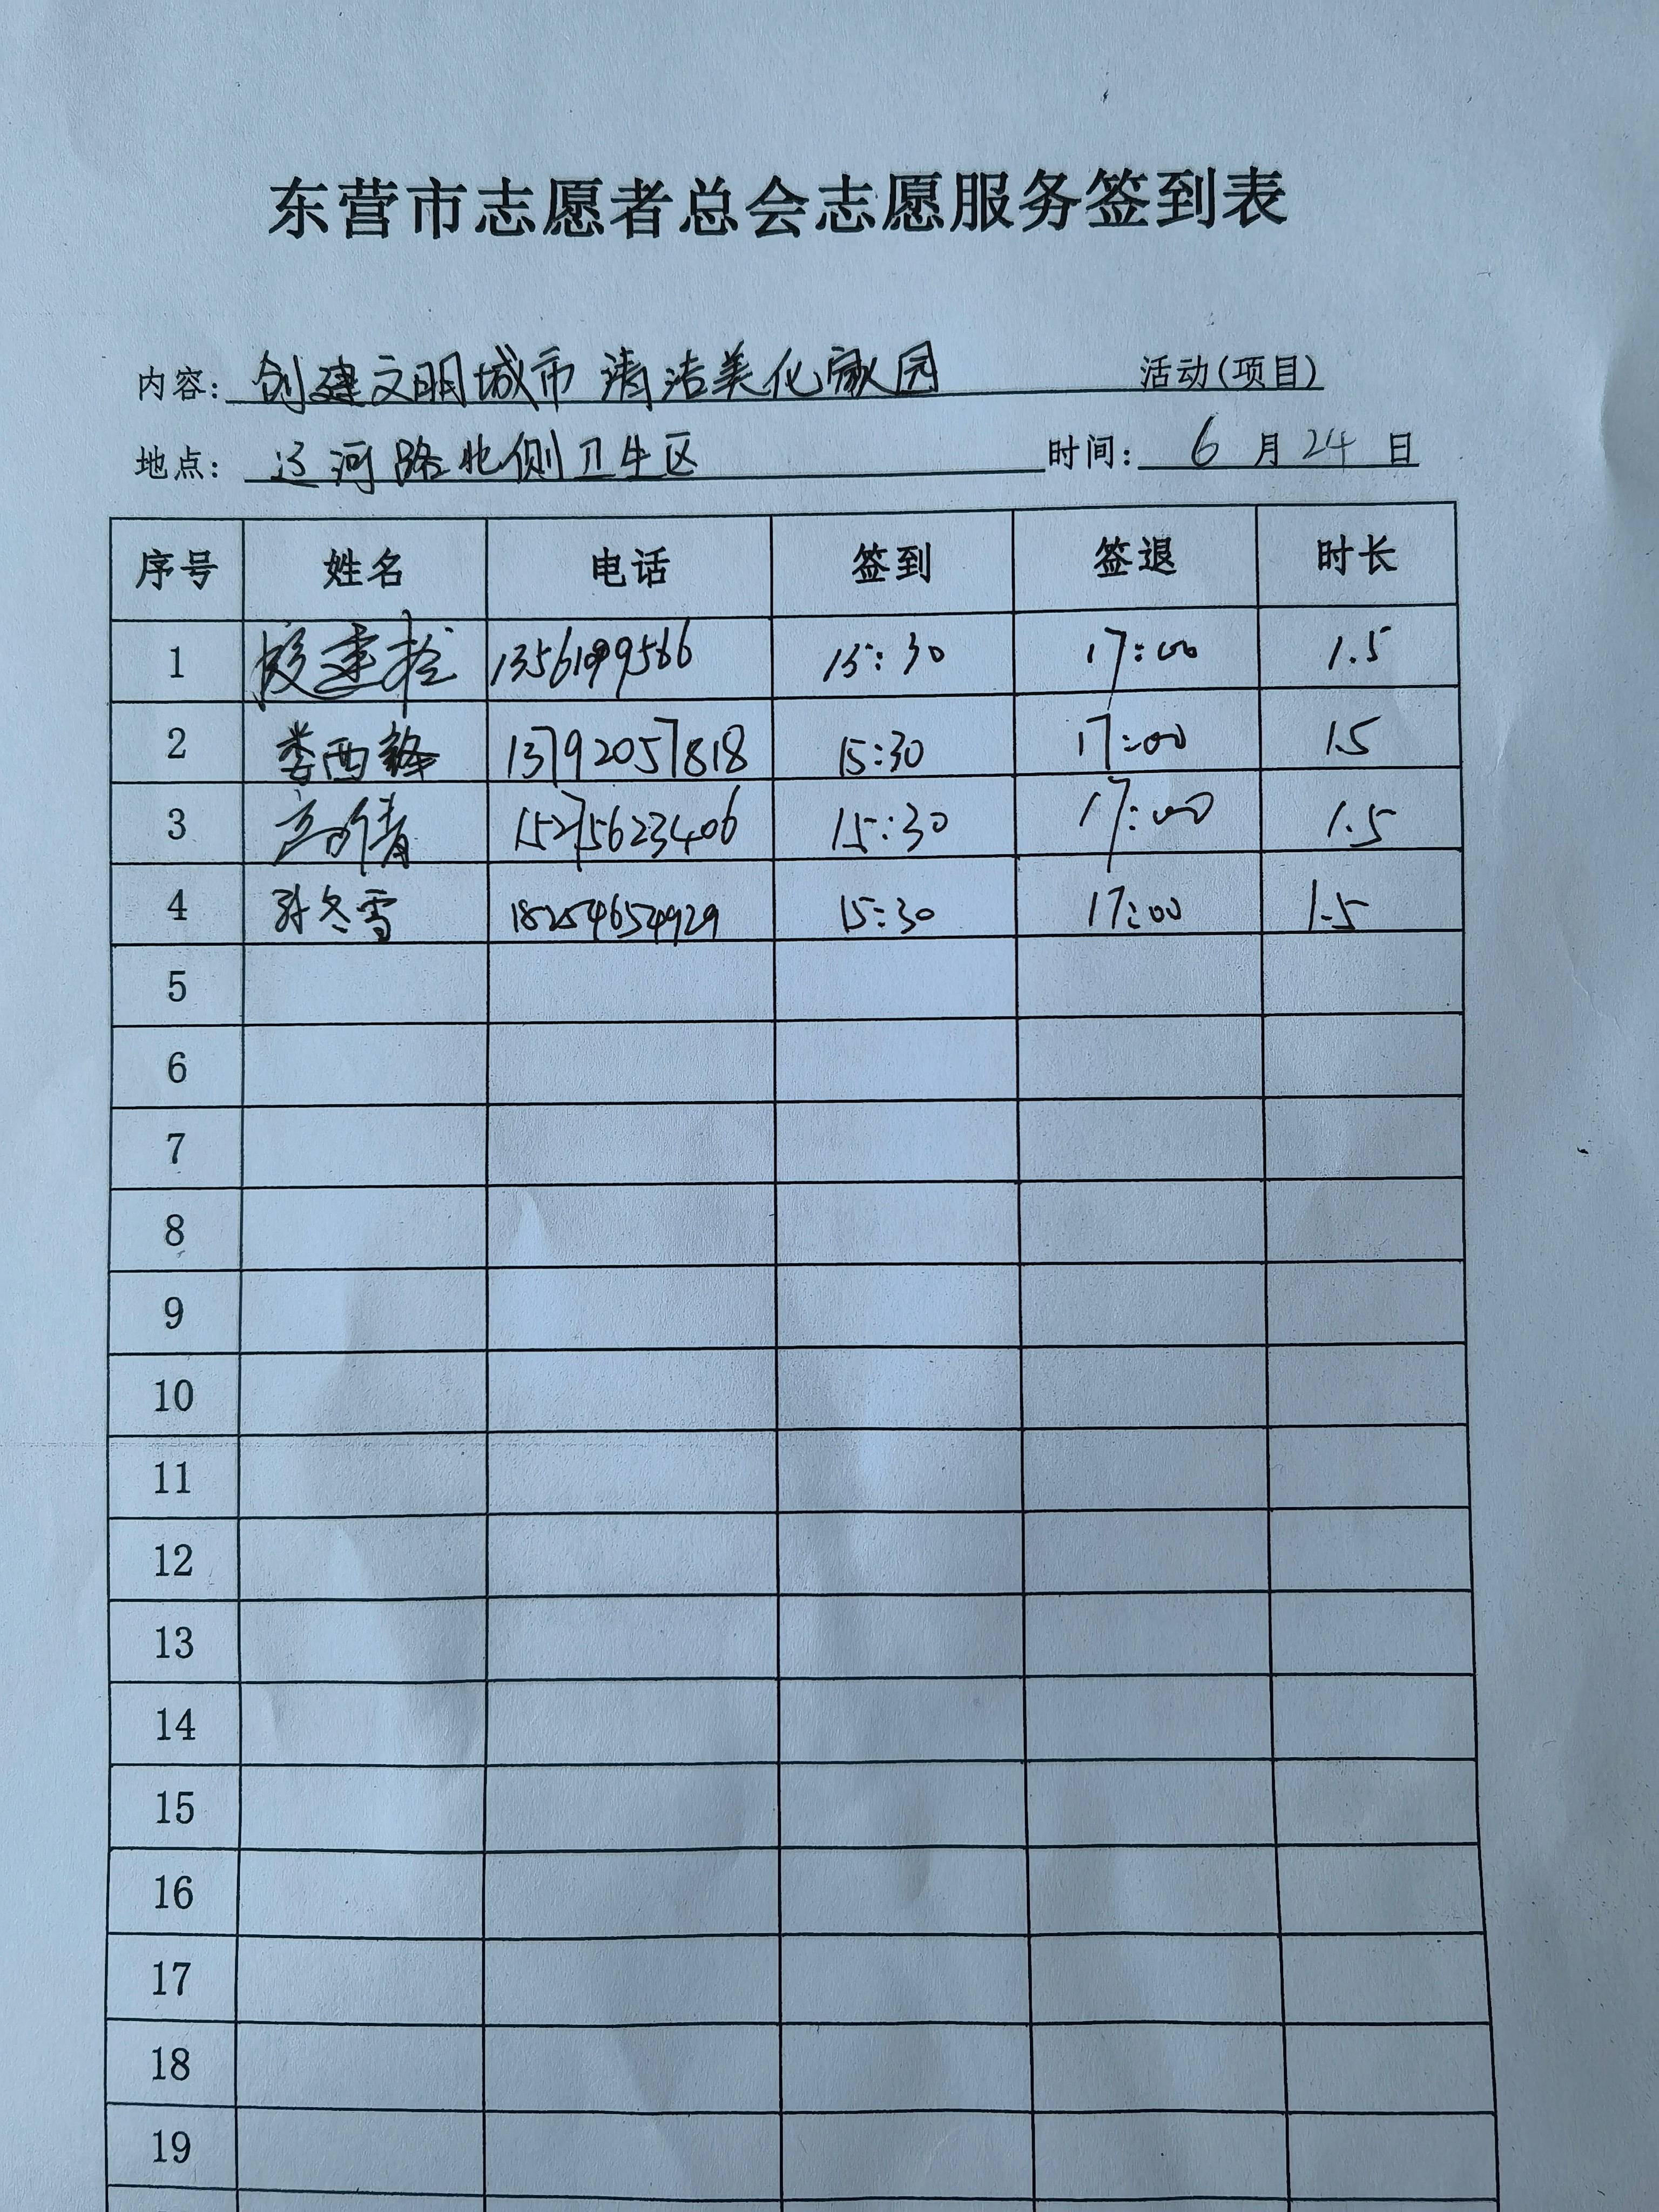 东营市志愿者总会志愿服务签到表
内容: 创建文明城市 清洁美化家园 活动(项目)
地点: 运河路北侧卫生区 时间: 6月24日
序号 姓名 电话 签到 签退 时长
1 段建拴 15:30 17:00 1.5
2 娄西锋 13792057818 15:30 17:00 1.5
3 高倩 15275623406 15:30 17:00 1.5
4 孙冬雪 18254654929 15:30 17:00 1.5
5
6
7
8
9
10
11
12
13
14
15
16
17
18
19